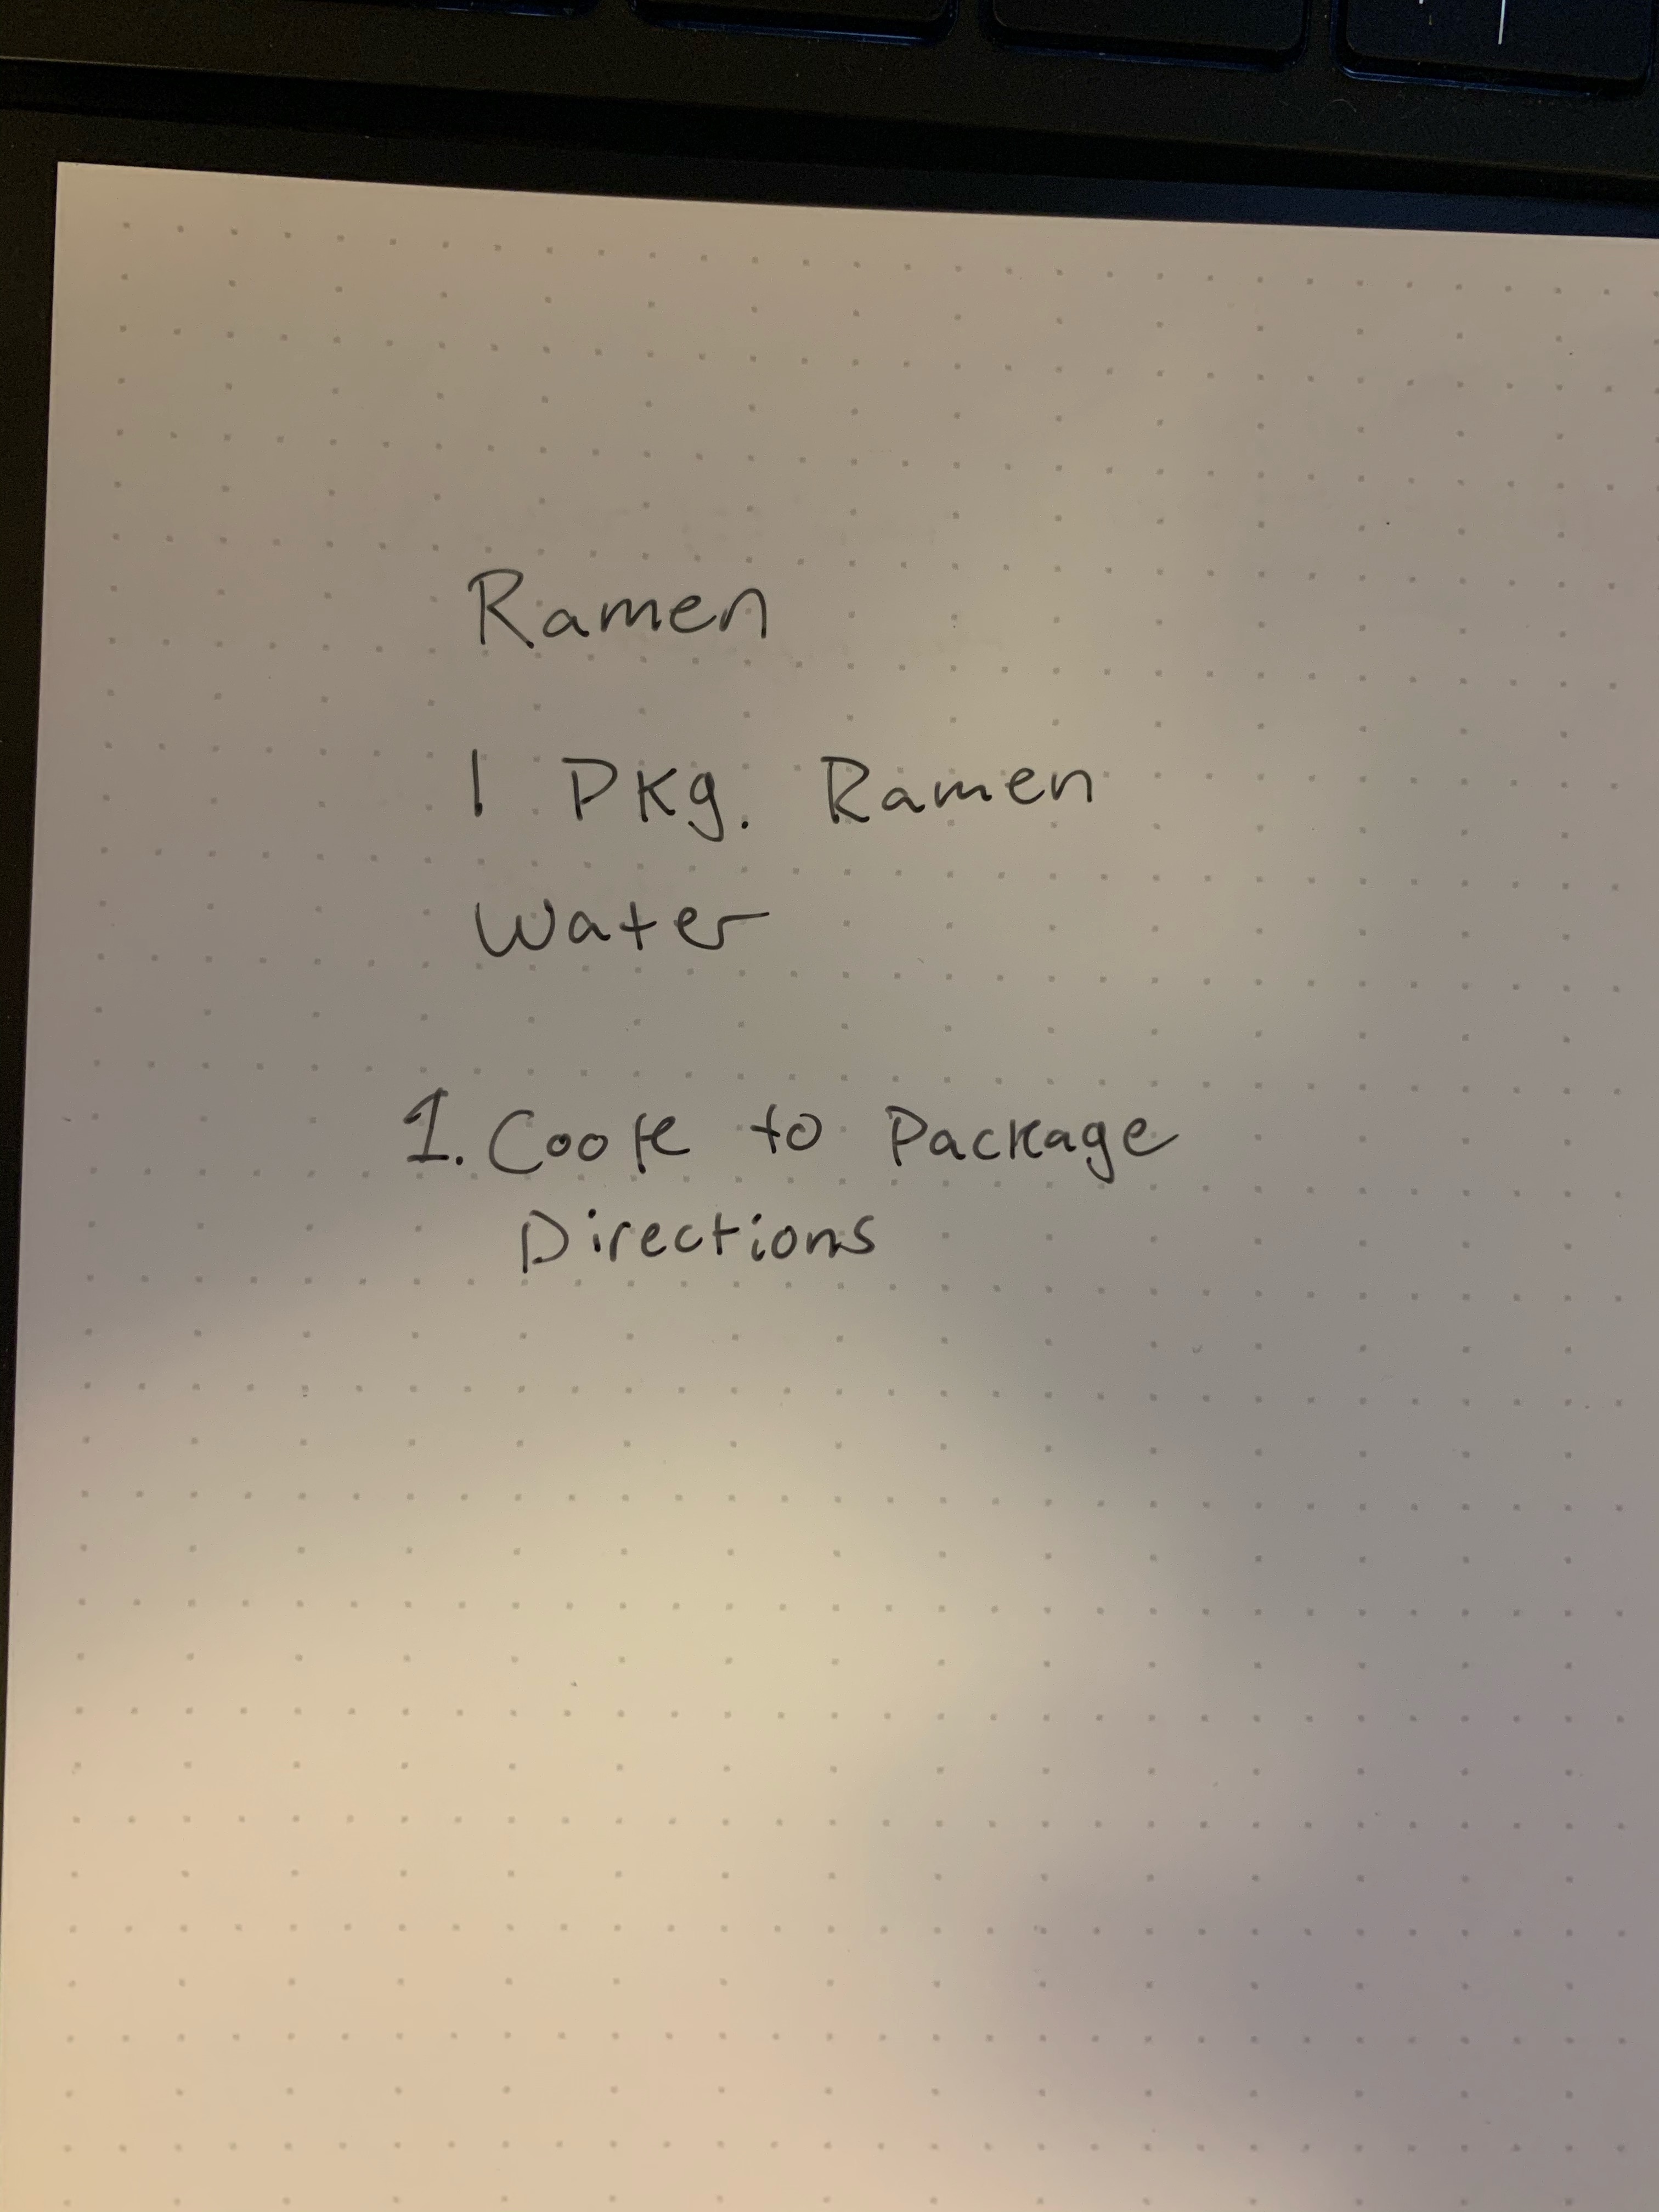 Ramen
1 Pkg. Ramen
Water
1. Cook to Package
Directions